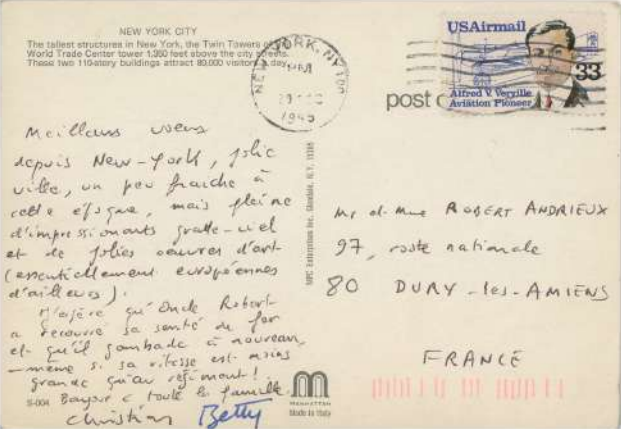 NEW YORK CITY
The tallest structures in New York, the Twin Towers of
World Trade Center tower 1,350 feet above the city streets.
These two 110-story buildings attract 80,000 visitors a day.
NEW YORK, NY 100
PM
1945
USAirmail
33
Alfred V. Verville
Aviation Pioneer
post
Meilleurs voeux
depuis New-York, jolie
ville, un peu fraiche à
cette époque, mais pleine
d'impressionants gratte-ciel
et de jolies oeuvres d'art
(essentiellement européennes
d'ailleurs).
J'espère qu'Oncle Robert
a recouvré sa santé de fer
et qu'il gambade à nouveau,
- même si sa vitesse est moins
grande qu'au régiment!
Bonjour à toute la famille.
Christian Betty
S-004
MPC Enterprises Inc. Glendale, N.Y. 11385
MANHATTAN
Made in Italy
Mr et Mme ROBERT ANDRIEUX
97, route nationale
80 DURY-les-AMIENS
FRANCE